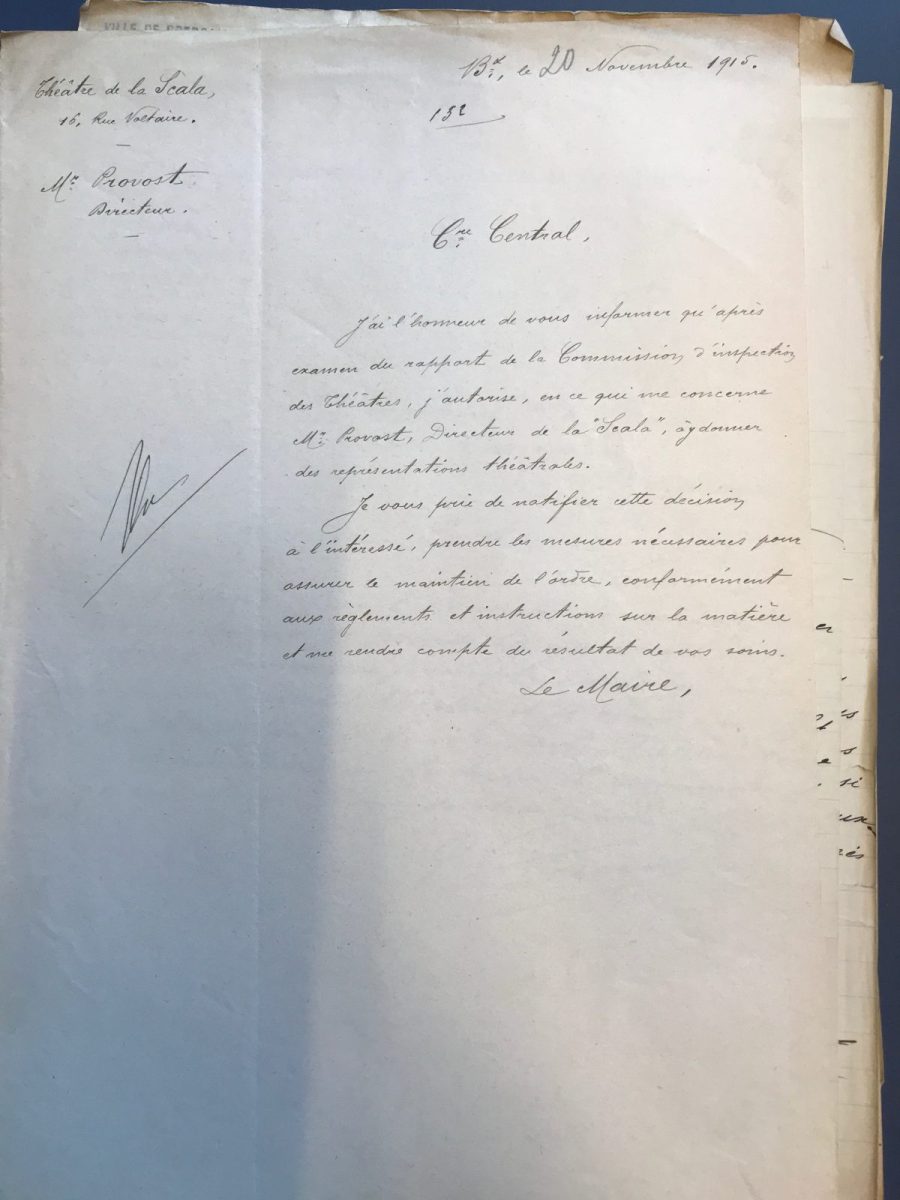 Théâtre de la Scala,
16, Rue Voltaire.
Mr. Provost
Directeur.
Bx, le 20 Novembre 1915.
152
Cre Central,
J'ai l'honneur de vous informer qu'après
examen du rapport de la Commission d'inspection
des Théâtres, j'autorise, en ce qui me concerne
Mr. Provost, Directeur de la "Scala", à y donner
des représentations théâtrales.
Je vous prie de notifier cette décision
à l'intéressé, prendre les mesures nécessaires pour
assurer le maintien de l'ordre, conformément
aux règlements et instructions sur la matière
et me rendre compte du résultat de vos soins.
Le Maire,